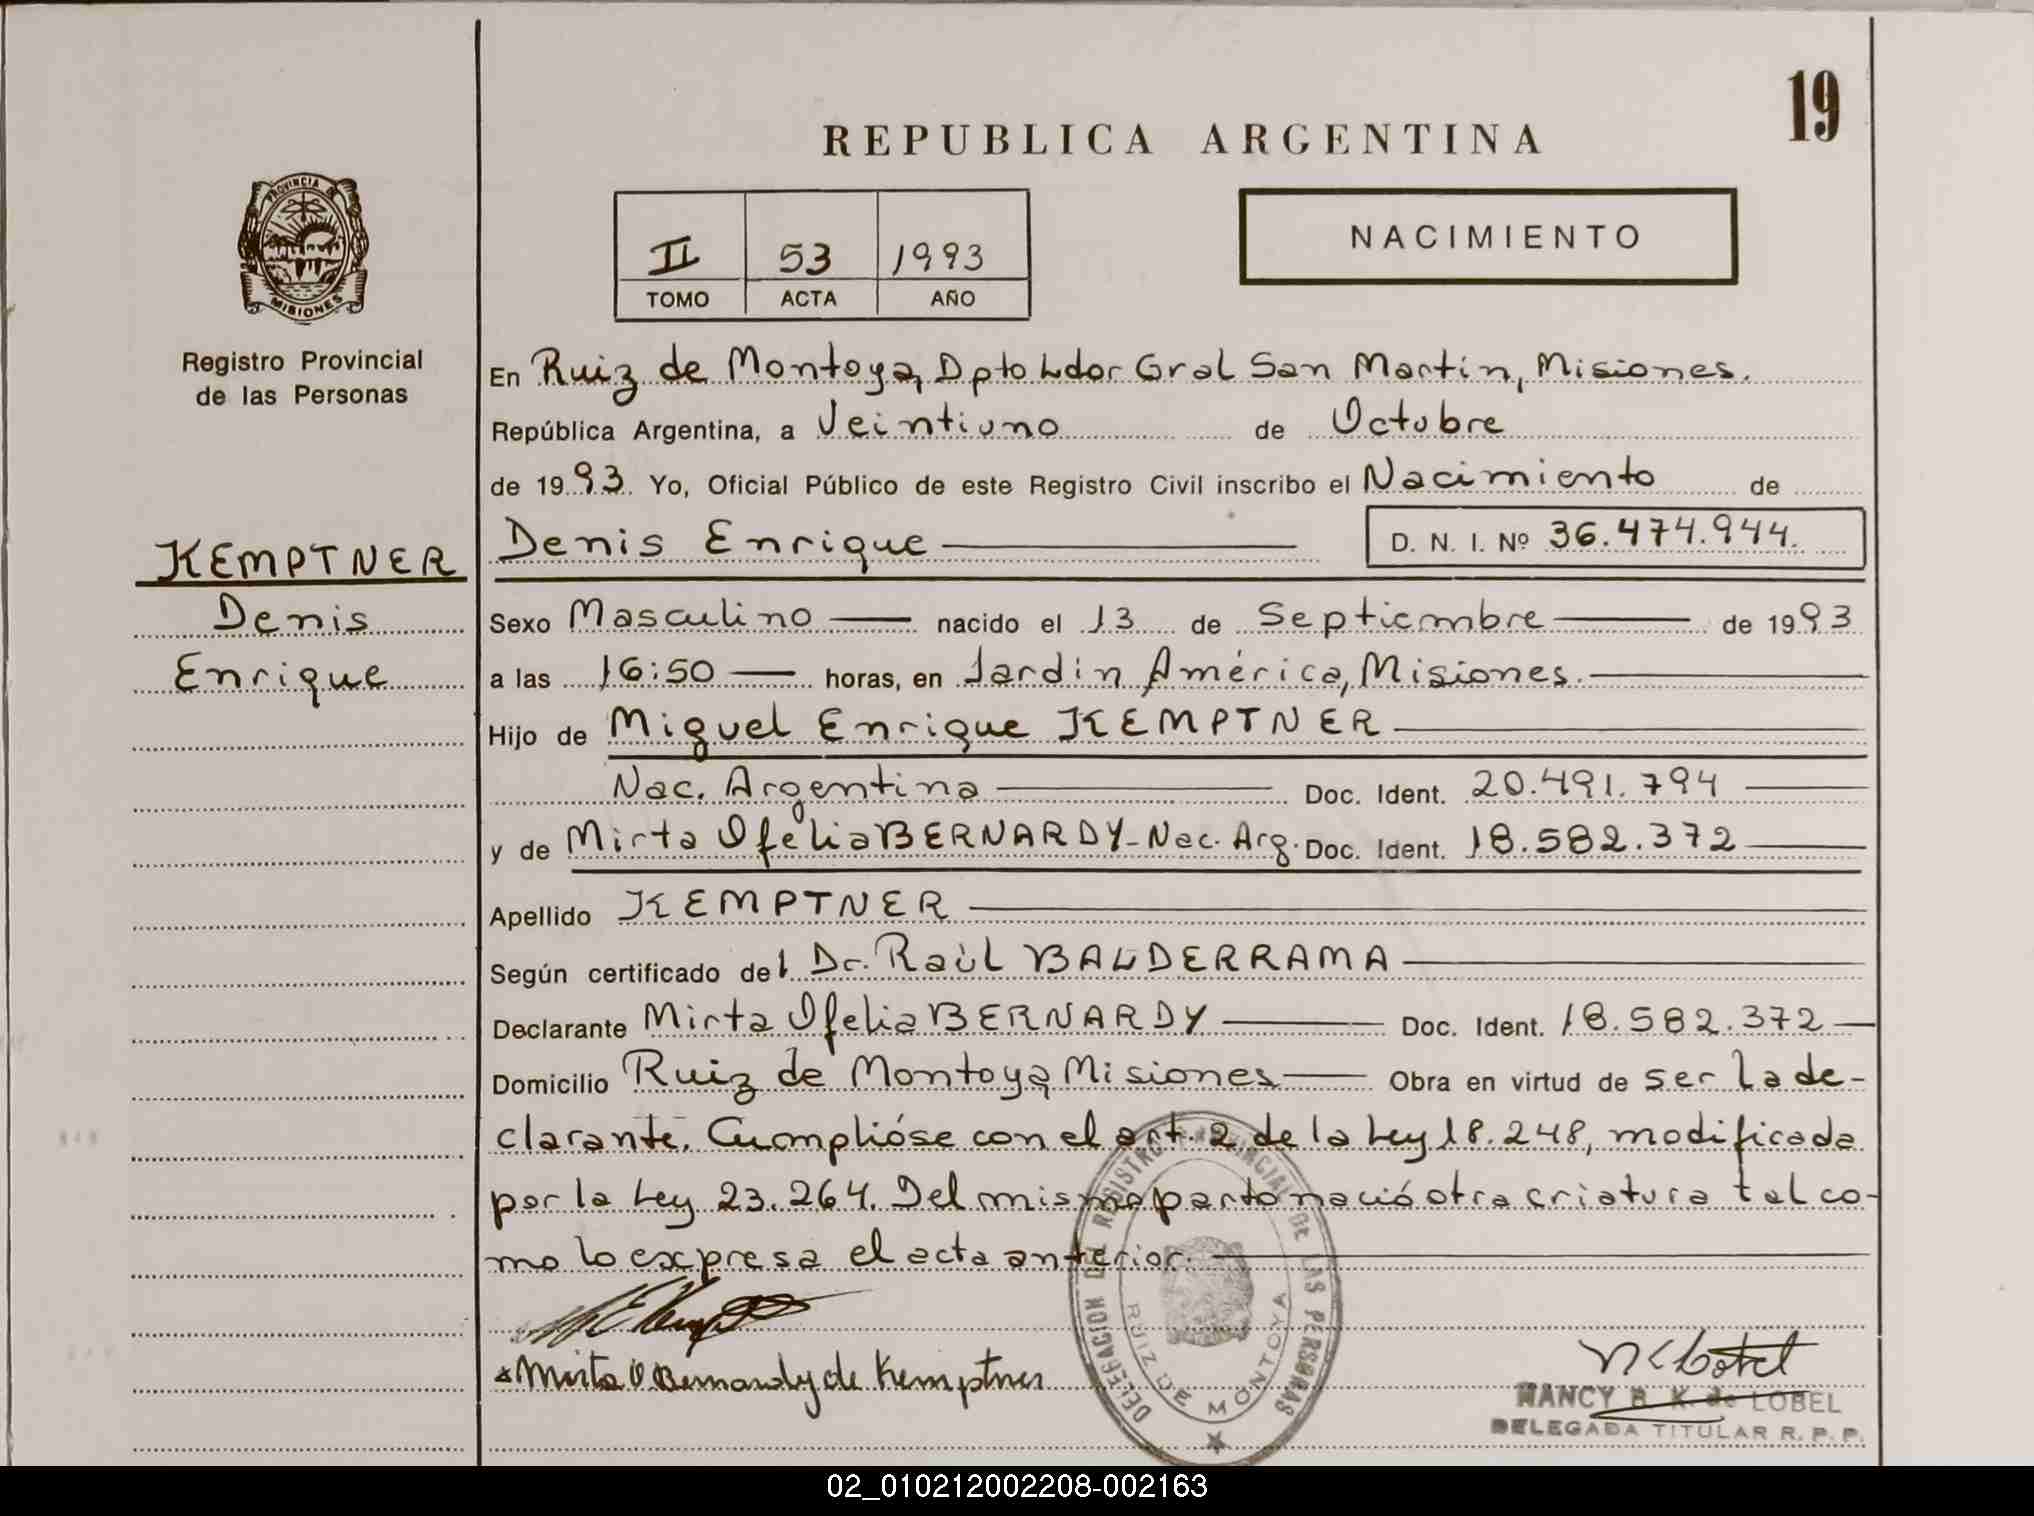 19
REPUBLICA ARGENTINA
PROVINCIA DE
MISIONES
Registro Provincial
de las Personas
II 53 1993
TOMO ACTA AÑO
NACIMIENTO
En Ruiz de Montoya, Dpto Ldor Gral San Martín, Misiones.
República Argentina, a Veintiuno de Octubre
de 1993. Yo, Oficial Público de este Registro Civil inscribo el Nacimiento de
KEMPTNER
Denis
Enrique
Denis Enrique D. N. I. Nº 36.474.944.
Sexo Masculino nacido el 13 de Septiembre de 1993
a las 16:50 horas, en Jardín América, Misiones.
Hijo de Miguel Enrique KEMPTNER
Nac. Argentina Doc. Ident. 20.491.794
y de Mirta Ofelia BERNARDY - Nac. Arg. Doc. Ident. 18.582.372
Apellido KEMPTNER
Según certificado del Dr. Raúl BALDERRAMA
Declarante Mirta Ofelia BERNARDY Doc. Ident. 18.582.372
Domicilio Ruiz de Montoya, Misiones Obra en virtud de ser la de-
clarante. Cumplióse con el art. 2 de la Ley 18.248, modificada
por la Ley 23.264. Del mismo parto nació otra criatura tal co-
mo lo expresa el acta anterior.
Mirta O. Bernardy de Kemptner
DELEGACION DEL REGISTRO PROVINCIAL DE LAS PERSONAS
RUIZ DE MONTOYA
NANCY B. K. de LOBEL
DELEGADA TITULAR R. P. P.
02_010212002208-002163